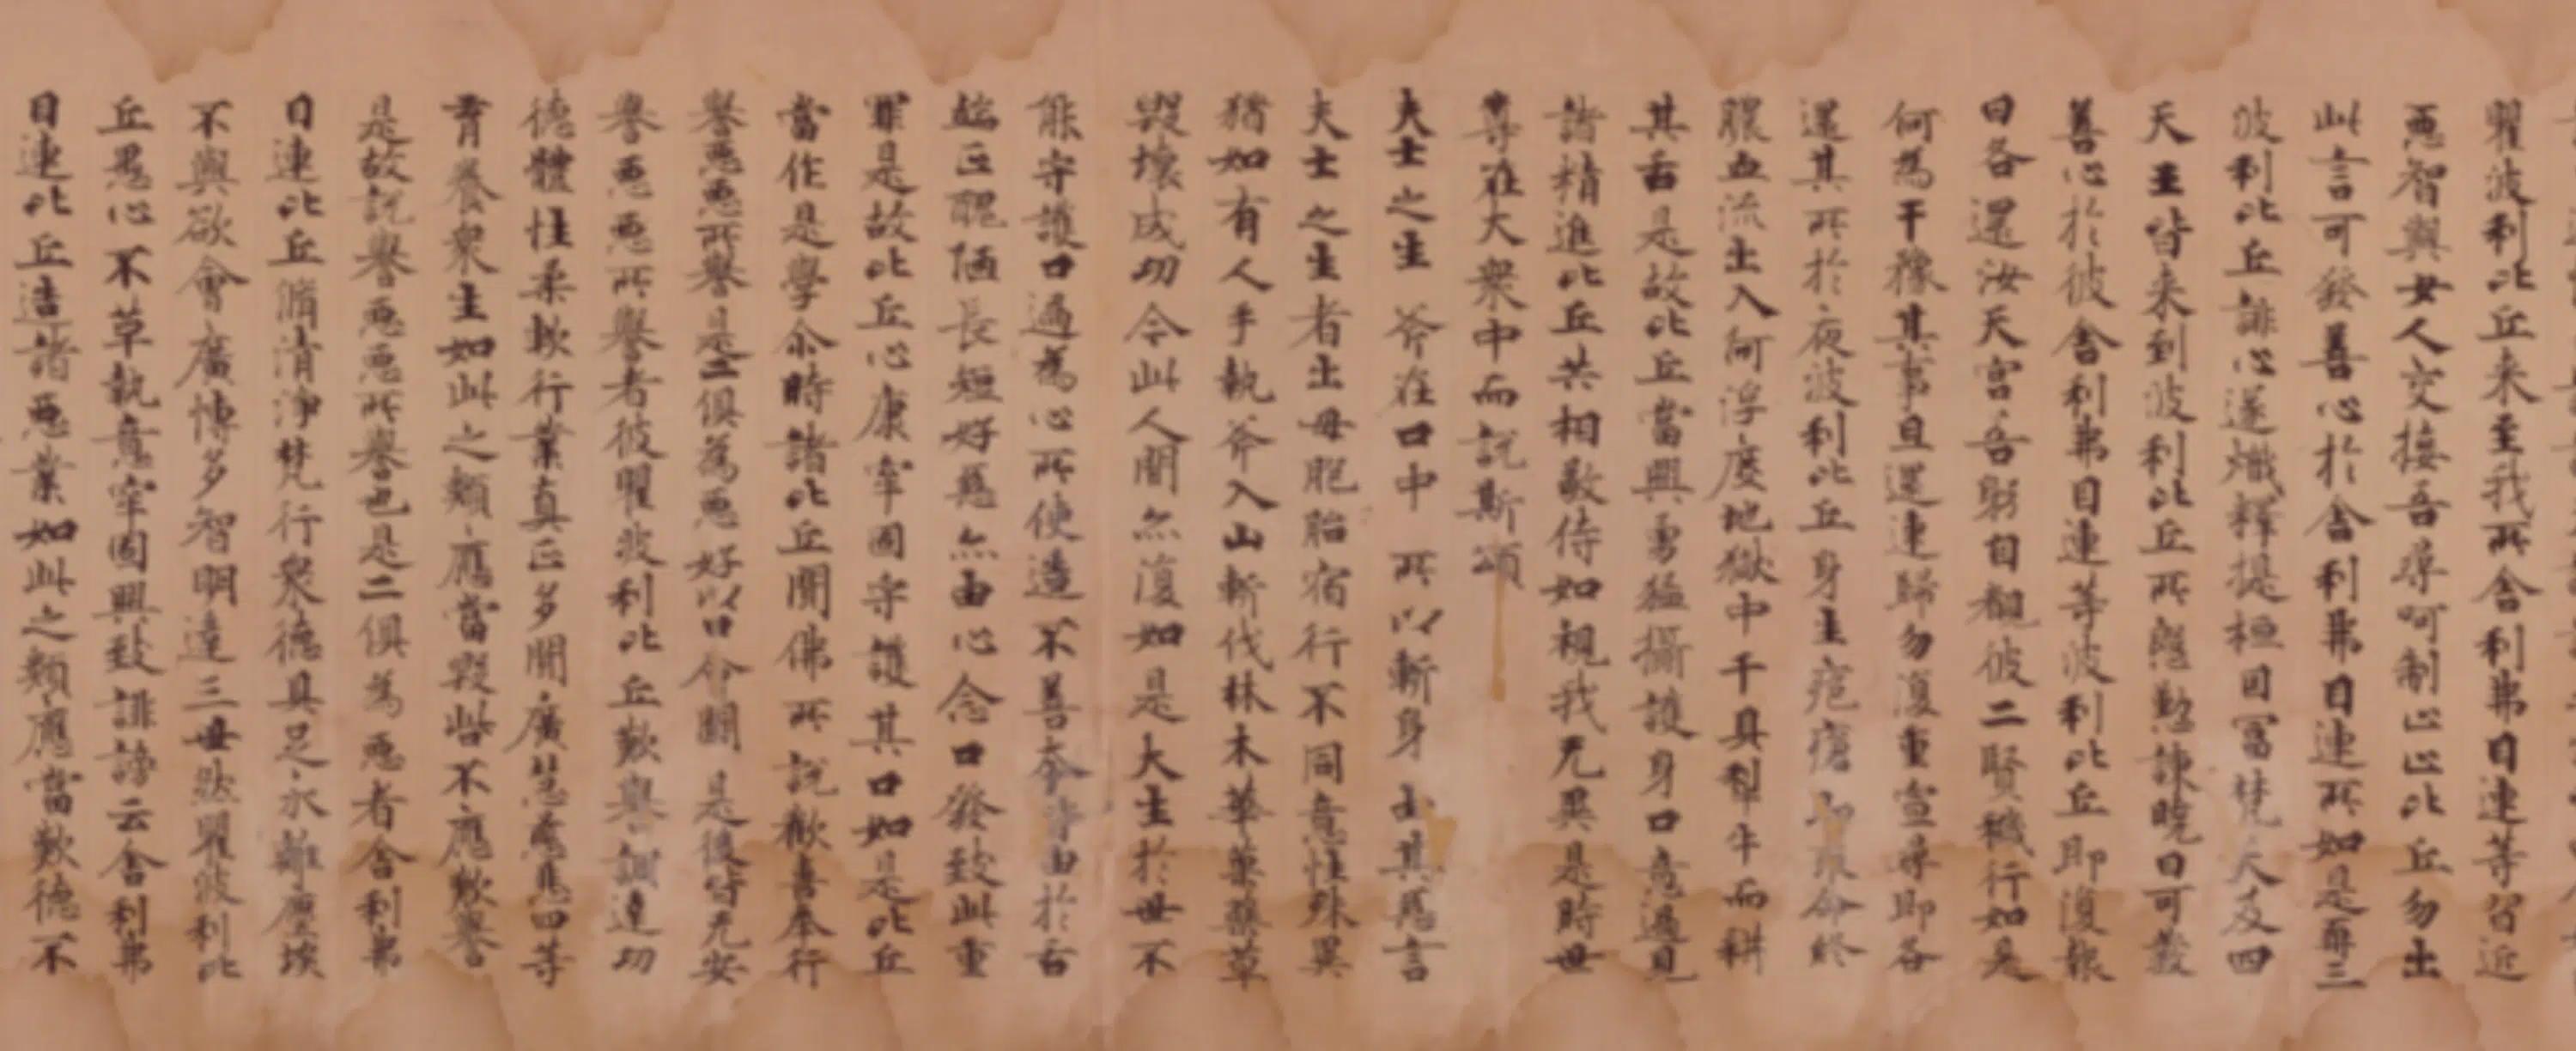 瞿波利比丘来至我所舍利弗目連等習近
惡智與女人交接吾尋呵制止止比丘勿出
此言可發善心於舍利弗目連所如是再三
波利比丘誹心遂熾釋提桓因冨梵天及四
天王皆来到波利比丘所慇懃諌曉曰可發
善心於彼舍利弗目連等波利比丘即復報
曰各還汝天宮吾躬自覩彼二賢穢行如是
何為干豫其事且還速歸勿復重宣尋即各
還其所於夜波利比丘身生疱瘡 命終
膿血流出入阿浮度地獄中千具犁牛而耕
其舌是故比丘當興勇猛攝護身口意過見
諸精進比丘共相敬侍如視我无異是時世
尊在大衆中而說斯頌
夫士之生 斧在口中 所以斬身 由其惡言
夫士之生者出母胞胎宿行不同意性殊異
猶如有人手執斧入山斬伐林木華菓藥草
毀壞成功令此人間无復如是大生於世不
能守護口過為心所使造不善本皆由於舌
端正醜陋長短好惡无由心念口發致此重
罪是故比丘心康牢固守護其口如是比丘
當作是學尒時諸比丘聞佛所說歡喜奉行
譽惡惡所譽是二俱為惡好以口會鬪是後皆无安
譽惡惡所譽者彼瞿波利比丘歎譽調達功
德體性柔軟行業真正多聞廣慧慈愍四等
育養衆生如此之類應當毀呰不應歎譽
是故說譽惡惡所譽也是二俱為惡者舍利弗
目連比丘脩清淨梵行衆德具足永離塵埃
不興欲會廣博多智明達三世然瞿波利比
丘愚心不革執意牢固興致誹謗云舍利弗
目連比丘造諸惡業如此之類應當歎德不